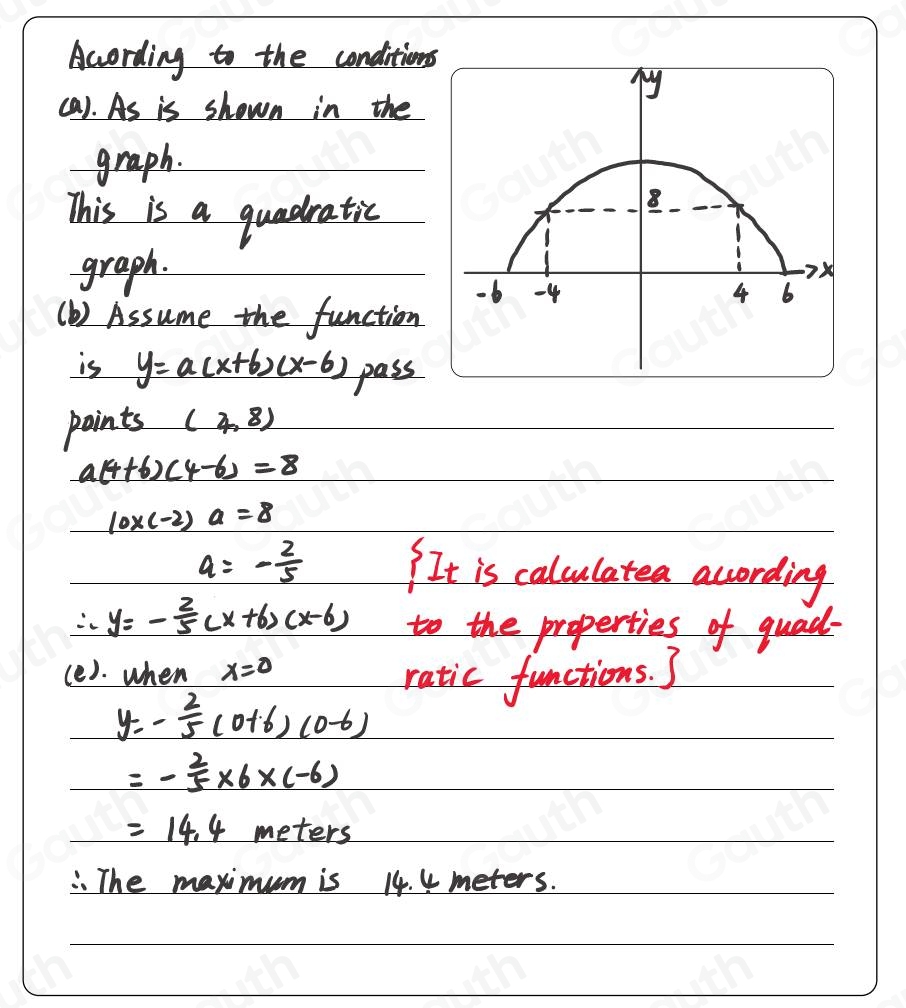 According to the conditions
(a). As is shown in the
graph.
This is a quadratic
graph.
(b) Assume the function
is y=a(x+6)(x-6) pass
points (4,8)
a(4+6)(4-6)=8
10×(-2) a=8
a= -2/5
∴ y= -2/5(x+6)(x-6)
{It is calculatea according
to the properties of quad-
ratic functions.}
(e). when x=0
y= -2/5(0+6)(0-6)
= -2/5×6×(-6)
= 14.4 meters
∴ The maximum is 14.4 meters.
y
8
-6 -4 4 6 x
Gauth